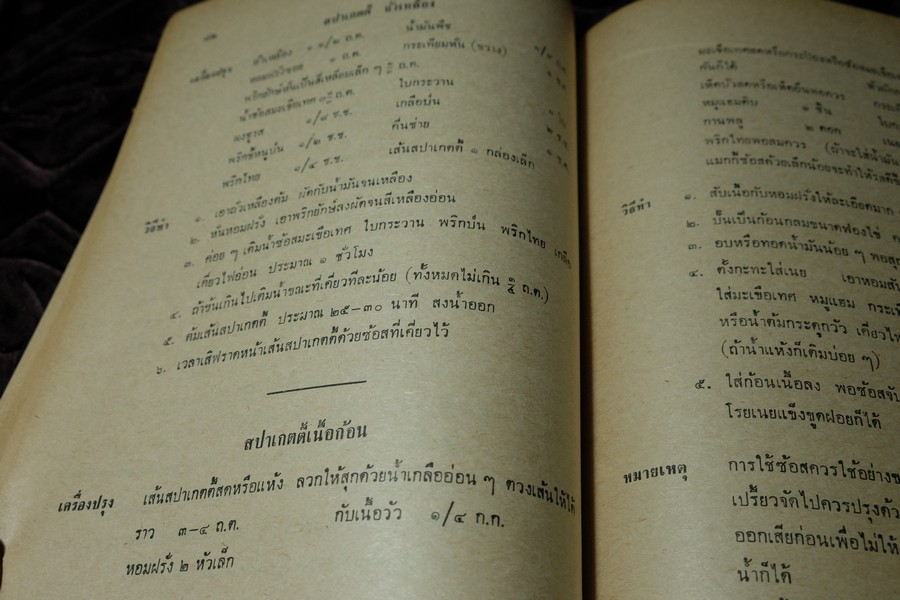 สปาเกตตี้
เครื่องปรุง ถั่วเหลือง ๑ ๑/๒ ถ.ต. น้ำมันพืช
หอมฝรั่งซอย ๑ ถ.ต. กระเทียมหั่น (ขวาง)
พริกยักษ์หั่นเป็นสี่เหลี่ยมเล็ก ๆ ถ.ต.
น้ำซ้อสมะเขือเทศ ถ.ต. ใบกระวาน
ผงชูรส ๑/๘ ช.ช. เกลือป่น
พริกขี้หนูป่น ๑/๒ ช.ช. คื่นช่าย
พริกไทย ๑/๔ ช.ช. เส้นสปาเกตตี้ ๑ กล่องเล็ก
วิธีทำ ๑. เอาถั่วเหลืองต้ม ผัดกับน้ำมันจนเหลือง
๒. หั่นหอมฝรั่ง เอาพริกยักษ์ลงผัดจนสีเหลืองอ่อน
๓. ค่อย ๆ เติมน้ำซ้อสมะเขือเทศ ใบกระวาน พริกป่น พริกไทย เกลือ
เคี่ยวไฟอ่อน ประมาณ ๑ ชั่วโมง
๔. ถ้าข้นเกินไปเติมน้ำขณะที่เคี่ยวทีละน้อย (ทั้งหมดไม่เกิน ๓/๔ ถ.ต.)
๕. ต้มเส้นสปาเกตตี้ ประมาณ ๒๕–๓๐ นาที สงน้ำออก
๖. เวลาเสิฟราดหน้าเส้นสปาเกตตี้ด้วยซ้อสที่เคี่ยวไว้
สปาเกตตี้เนื้อก้อน
เครื่องปรุง เส้นสปาเกตตี้สดหรือแห้ง ลวกให้สุกด้วยน้ำเกลืออ่อน ๆ ตวงเส้นให้ได้
ราว ๓–๔ ถ.ต. กับเนื้อวัว ๑/๔ ก.ก.
หอมฝรั่ง ๒ หัวเล็ก
ต้นก็ได้
เห็ดบัวสดหรือเห็ดอื่นพอควร
หมูแฮมดิบ ๑ ชิ้น
กานพลู ๒ ดอก
พริกไทยพอสมควร (ถ้าจะใส่น้ำมัน
แมกกี้ซ้อสด้วยเล็กน้อยจะทำให้รสดี
วิธีทำ ๑. สับเนื้อกับหอมฝรั่งให้ละเอียดมาก
๒. ปั้นเป็นก้อนกลมขนาดฟองไข่
๓. อบหรือทอดน้ำมันน้อย ๆ พอสุก
๔. ตั้งกะทะใส่เนย เอาหอมสับ
ใส่มะเขือเทศ หมูแฮม กระเทียม
หรือน้ำต้มกระดูกวัว เคี่ยวไฟ
(ถ้าน้ำแห้งก็เติมบ่อย ๆ)
๕. ใส่ก้อนเนื้อลง พอซ้อสจับ
โรยเนยแข็งขูดฝอยก็ได้
หมายเหตุ การใช้ซ้อสควรใช้อย่างข
เปรี้ยวจัดไปควรปรุงด้ว
ออกเสียก่อนเพื่อไม่ให้
น้ำก็ได้